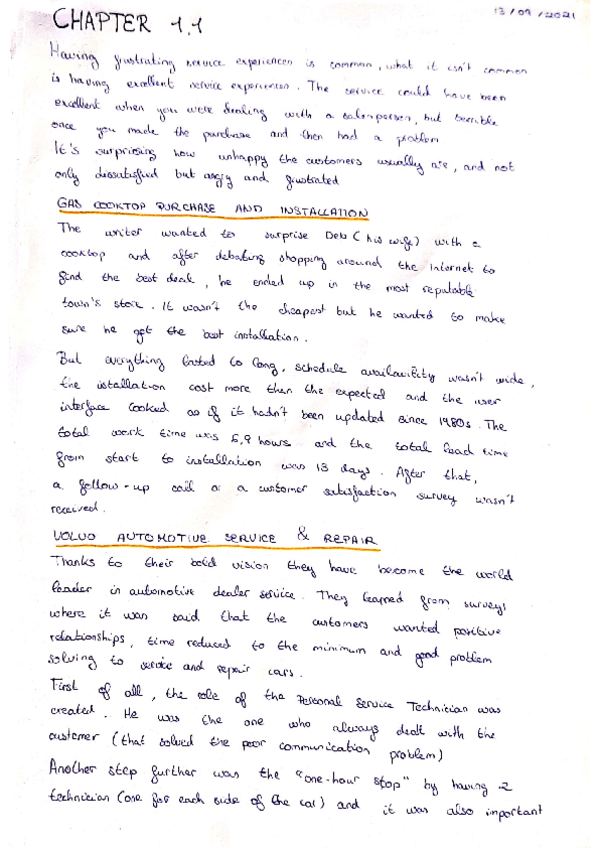 13/09/2021
CHAPTER 1.1
Having frustrating service experiences is common, what it isn't common
is having excellent service experiences. The service could have been
excellent when you were dealing with a salesperson, but terrible
once you made the purchase and then had a problem
It's surprising how unhappy the customers usually are, and not
only dissatisfied but angry and frustrated
GAS COOKTOP PURCHASE AND INSTALLATION
The writer wanted to surprise Deb (his wife) with a
cooktop and after debating shopping around the internet to
find the best deal, he ended up in the most reputable
town's store. It wasn't the cheapest but he wanted to make
sure he got the best installation.
But everything lasted to long, schedule availavility wasn't wide,
the istallation cost more than the expected and the user
interface looked as if it hadn't been updated since 1980s. The
total work time was 6,9 hours and the total lead time
from start to installation was 13 days. After that,
a follow-up call or a customer satisfaction survey wasn't
received.
VOLVO AUTOMOTIVE SERVICE & REPAIR
Thanks to their bold vision they have become the world
leader in automotive dealer service. They learned from surveys
where it was said that the customers wanted positive
relationships, time reduced to the minimum and good problem
solving to service and repair cars.
First of all, the role of the Personal Service Technician was
created. He was the one who always dealt with the
customer (that solved the poor communication problem)
Another step further was the "one-hour stop" by having 2
technician (one for each side of the car) and it was also important